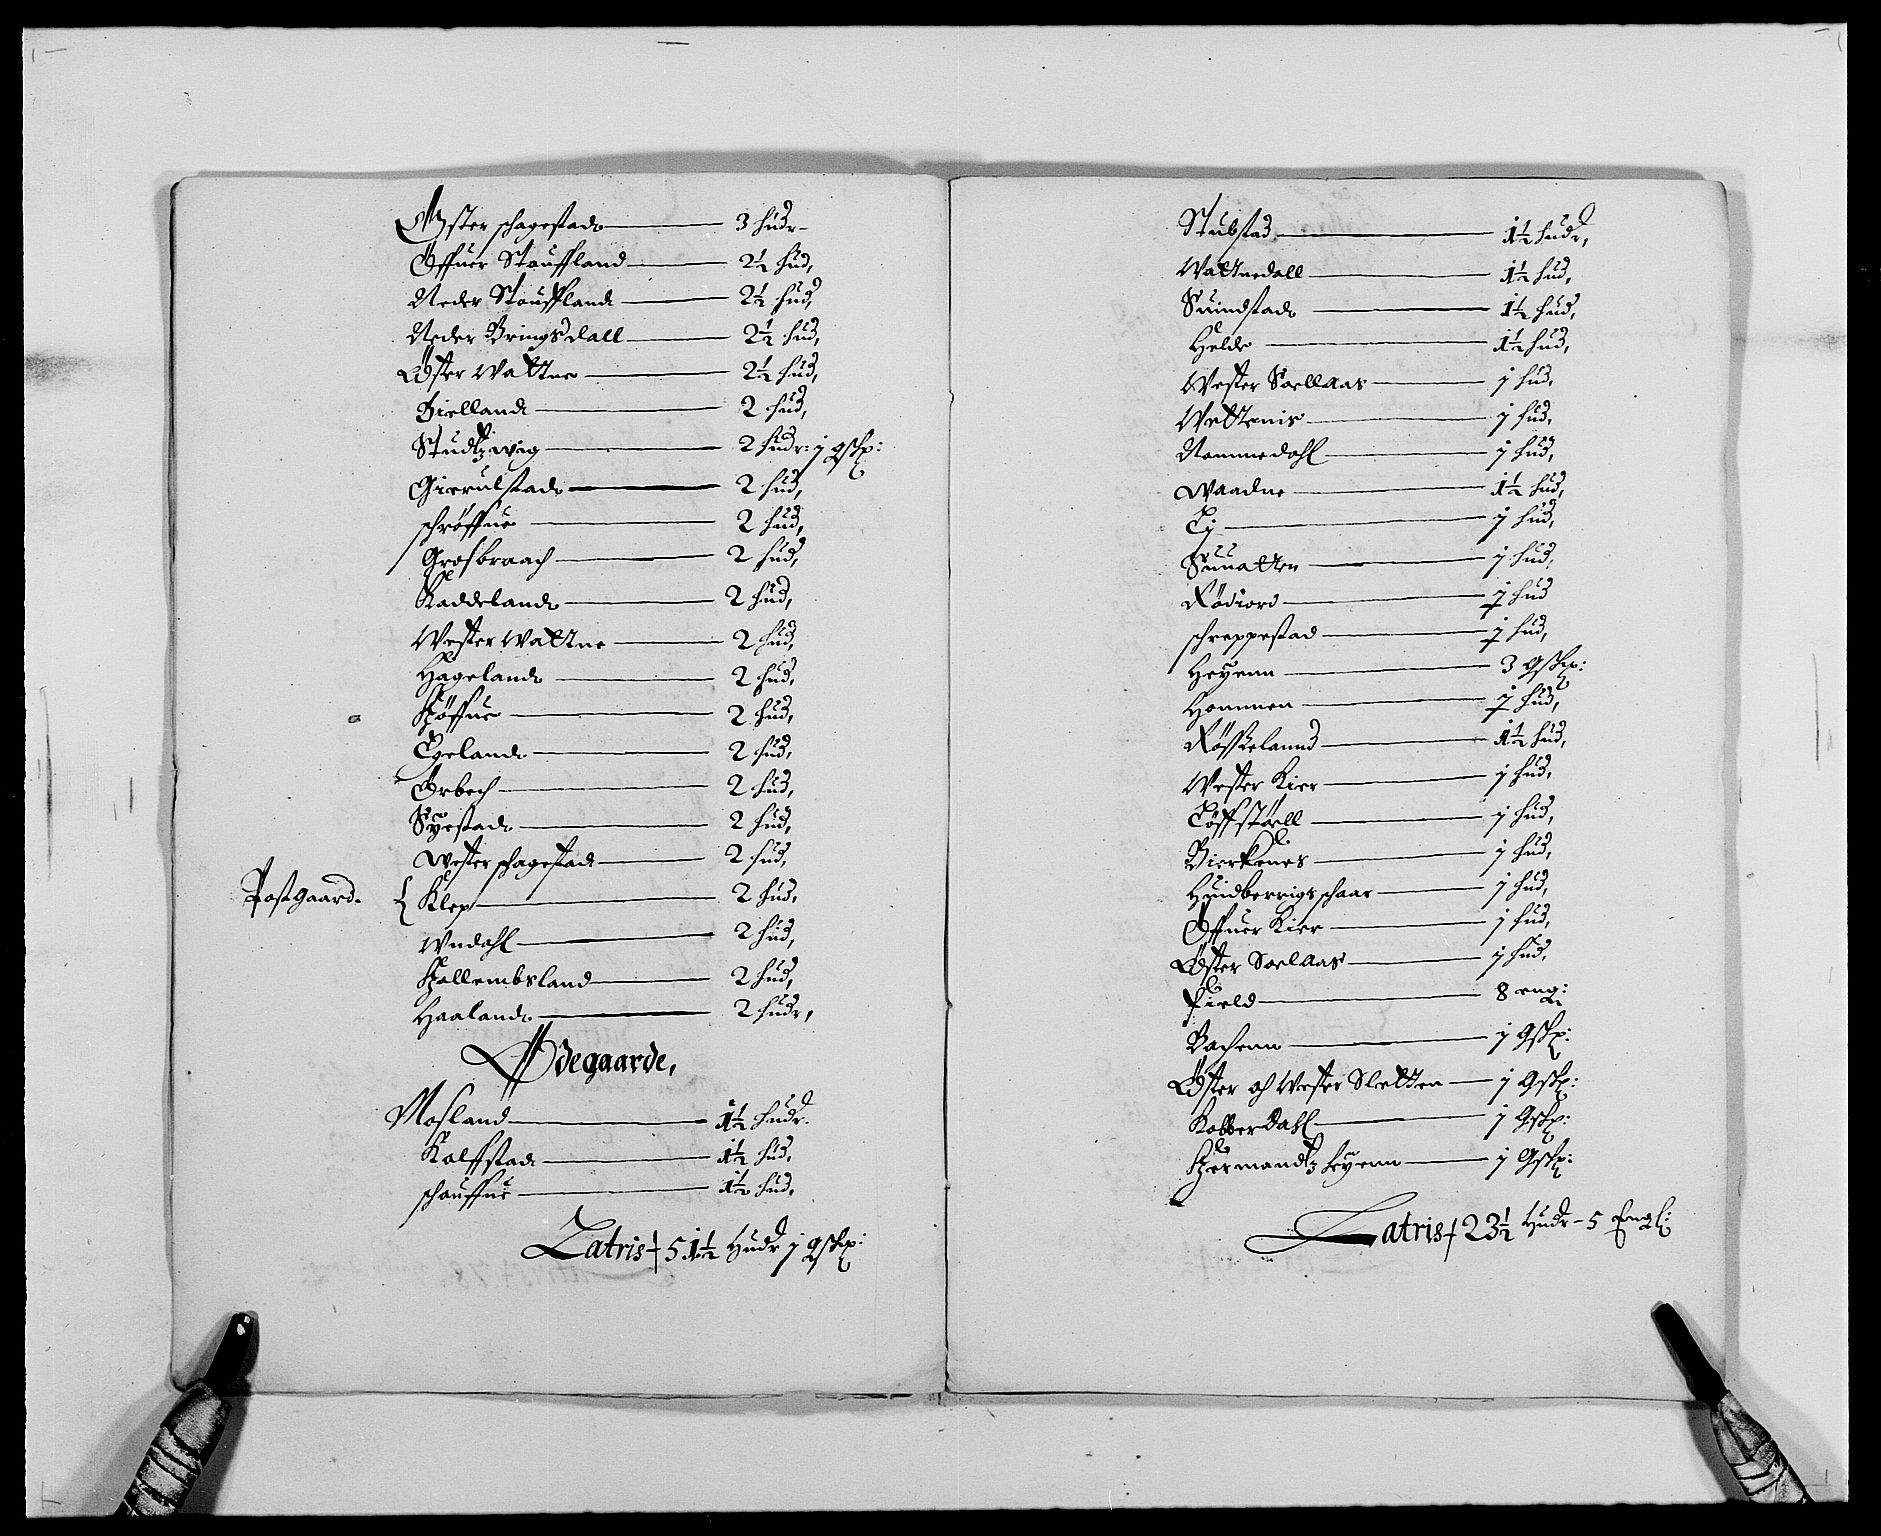 Øster schagestad 3 hudr
Offuer Stouffland 2½ hud,
Neder Stouffland 2½ hud,
Neder Bringsdall 2½ hud,
Øster Wattne 2½ hud,
Bielland 2 hud,
Studtzwig 2 hudr: j gskp:
Gierulstad 2 hud,
schrøffue 2 hud,
Grosbraach 2 hud,
Raddeland 2 hud,
Wester Wattne 2 hud,
Hageland 2 hud,
Høffue 2 hud,
Egeland 2 hud,
Orbech 2 hud,
Syestad 2 hud,
Wester schagestad 2 hud,
Postgaard. { Klep 2 hud,
Wndahl 2 hud,
Hollembsland 2 hud,
Haaland 2 hudr,
Ødegaarde,
Mosland 1½ hudr.
Kalffstad 1½ hud,
schauffue 1½ hud,
Latris 51½ Hudr j gskp:
Stubstad 1½ hudr,
Wattnedall 1½ hud,
Suindstad 1½ hud,
Helde 1½ hud,
Wester Soellaas j hud,
Wettenis j hud,
Nommedahl j hud,
Waadne 1½ hud,
Ej j hud,
Suuatten j hud,
Rødiord j hud
schreppestad j hud,
Heyenn 3 gskp:
Hommen j hud,
Røsskelannd 1½ hud,
Wester Kier j hud,
Tøffstøell j hud,
Bierkenes j hud,
Huidberrigsschaar j hud,
Offuer Kier j hud,
Øster Soelaas j hud,
Field 8 eng:
Bachenn j gskp:
Øster och Wester Sletten j gskp:
Kobberdahl j gskp:
Hermandtz heyenn j gskp:
Latris 23½ Hudr 5 Engl: